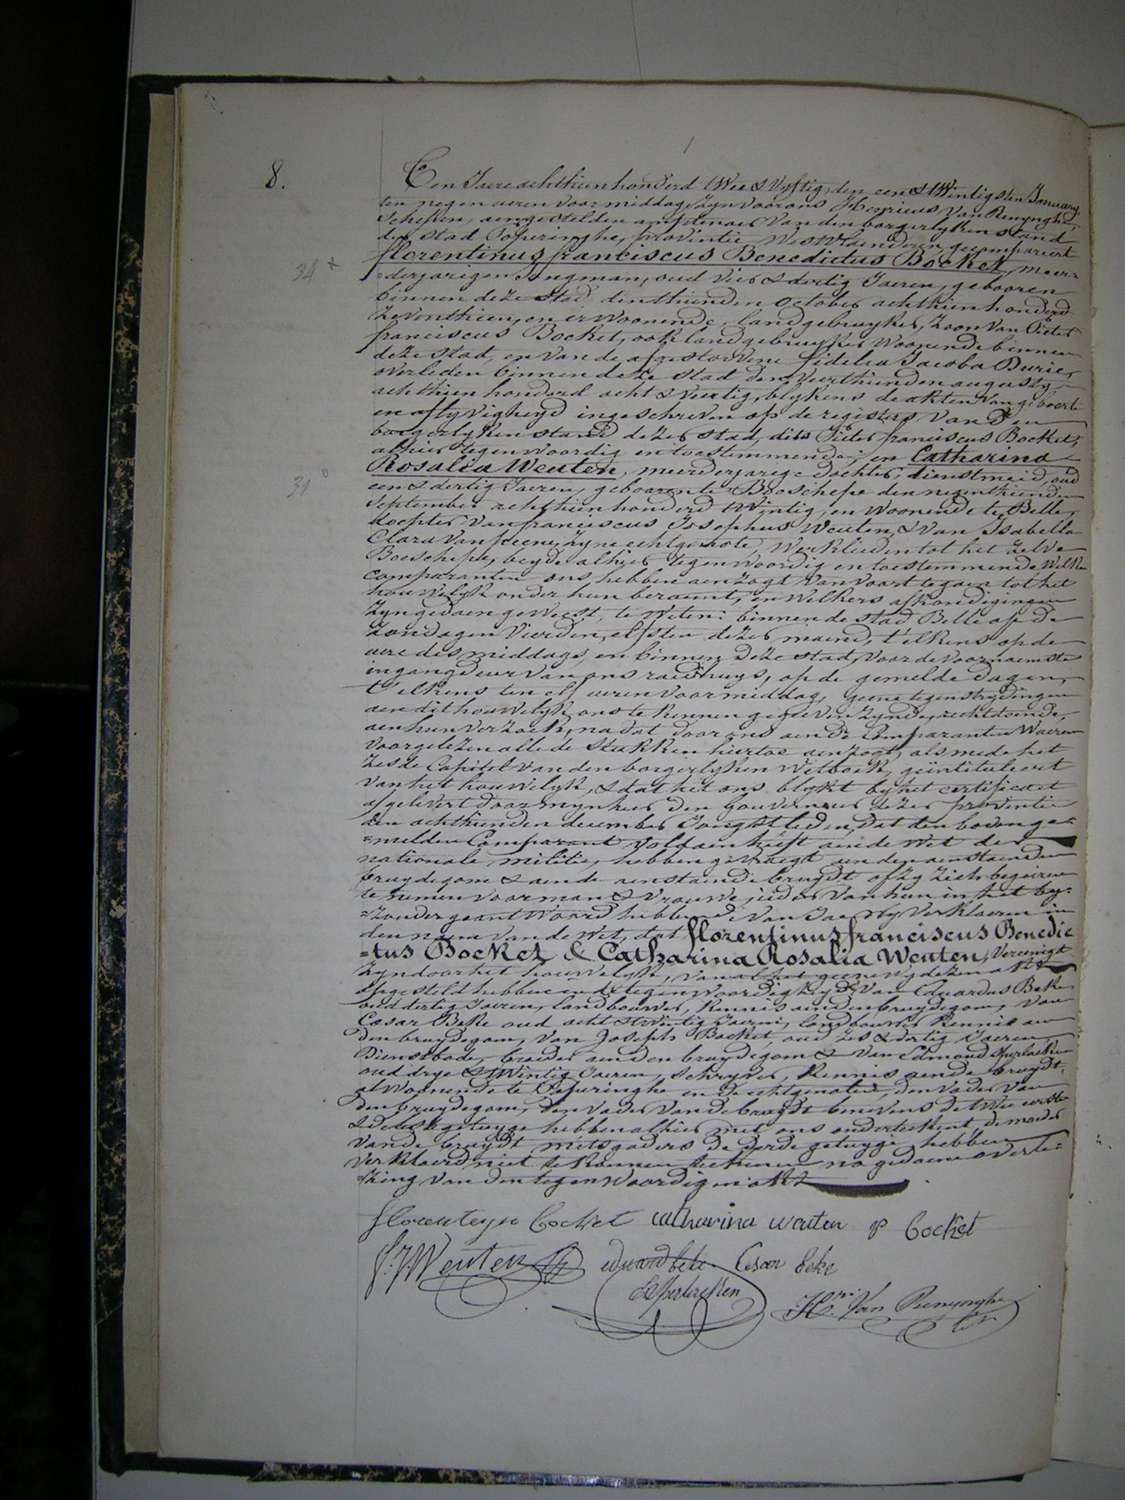 8.
Ten Jaere achthien honderd twee & vyftig, den een & twintigsten January
ten negen ueren voormiddag, zyn voor ons Henricus Van Renynghe,
Schepen, aengestelden amptenaer van den borgerlyken stand
der stad Poperinghe, provintie Westvlaenderen, gecompareert
florentinus franciscus Benedictus Bocket, meer=
34
=derjarigen Jongman, oud vier & dertig Jaeren, gebooren
binnen deze stad den thienden October achthien honderd
zeventhien, en er woonende, landgebruyker, zoon van Pieter
franciscus Bocket, ook landgebruyker woonende binnen
deze stad, en van de afgestorvene fidelia Jacoba Durie,
overleden binnen deze stad den veerthienden augusty
achthien honderd acht & veertig, blykens de akten van geboorte
en aflyvigheyd ingeschreven op de registers van den
borgerlyken stand dezer stad, dito Pieter franciscus Bocket,
alhier tegenwoordig en toestemmende; en Catharina
Rosalia Weuten, meerderjarige dochter, dienstmeid, oud
31
een & dertig Jaeren, gebooren te Boeschepe den negenthienden
September achthien honderd twintig, en woonende te Belle,
dochter van franciscus Josephus Weuten, & van Isabella
Clara Van zyne echtgenote, werklieden tot het zelve
Boeschepe, beyde alhier tegenwoordig en toestemmende. Welke
comparanten ons hebben aenzogt van voort te gaen tot het
houwelyk onder hun beraemt, en welkers afkondigingen
zyn gedaen geweest, te weten: binnen de stad Belle op de
zondagen vierden, elfsten dezer maend, t'elkens op de
uere des middags, en binnen deze stad, voor de voornaemste
ingangdeur van ons raedhuys, op de gemelde dagen,
t'elkens ten elf ueren voormiddag, geene tegenstrydingen
aen dit houwelyk ons te kennen gegeven zynde, rechtdoende
aen hun verzoek, na dat door ons aen de Comparanten waeren
voorgelezen alle de stukken hiertoe aenzogt, als mede het
zesde Capittel van den borgerlyken Wetboek, geïntituleert
van het houwelyk, & dat het ons blykt by het certificaet
afgelevert door mynheer den Gouverneur dezer provintie
den achthienden december Jongstleden, dat den bovenge=
=melden Comparant voldaen heeft aen de Wet der
nationale militie, hebben gevraegt aen den aenstaenden
bruydegom & aen de aenstaende bruydt of zy zich begeiren
te nemen voor man & vrouwe, jeder van hun in het by=
=zonder geantwoord hebbende van Jae, wy verklaeren in
den naem van de Wet, dat florentinus franciscus Benedic
=tus Bocket & Catharina Rosalia Weuten, vereenigt
zyn door het houwelyk, van al het geene wy dezen akt
opgesteld hebben in de tegenwoordigheyd van Eduardus Beke,
oud dertig Jaeren, landbouwer, kennis aen den bruydegom, van
Cesar Beke oud acht & twintig Jaeren, landbouwer kennis aen
den bruydegom, van Joseph Bocket, oud zes & dertig Jaeren,
Dienstbode, broeder aen den bruydegom & van Edmond
oud drye & twintig Jaeren, schryver, kennis aen de bruydt,
al woonende te Poperinghe en de echtgenoten, den vader van
den bruydegom, den vader van de bruydt benevens de twee eerste
& de getuyge hebben alhier met ons onderteekent, de moeder
van de bruydt mitsgaders de derde getuyge hebben
verklaerd niet te konnen teekenen na gedaene overle=
=zing van den tegenwoordigen akt.
florenteyn Bocket catharina weuten p bocket
f. J. Weuten eduard beke Cesar beke
Hri. Van Renynghe